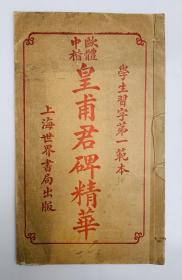 學生習字第一範本
歐體
中楷
皇甫君碑精華
上海世界書局出版